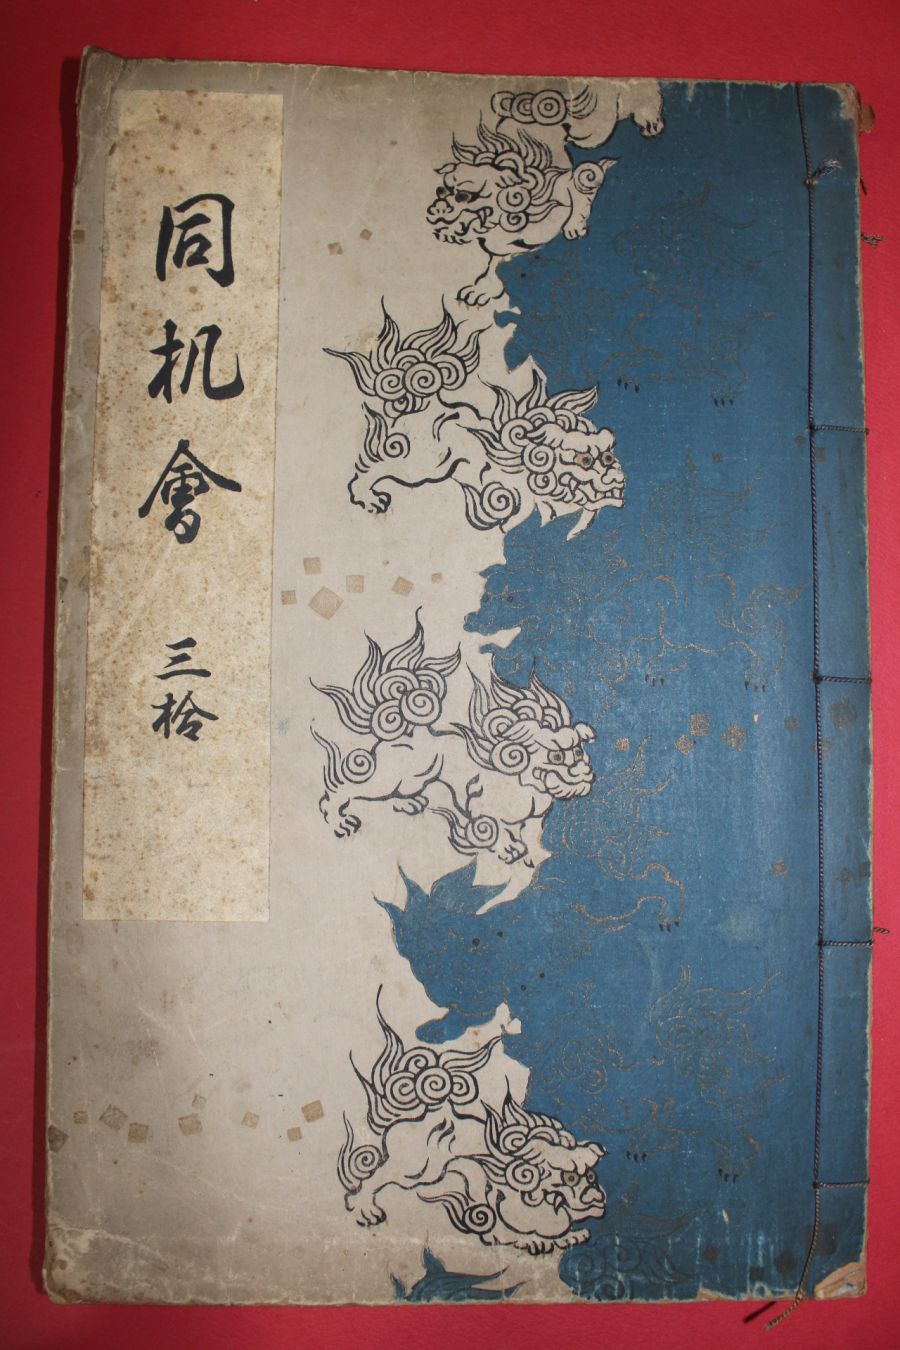 同机會 三拾